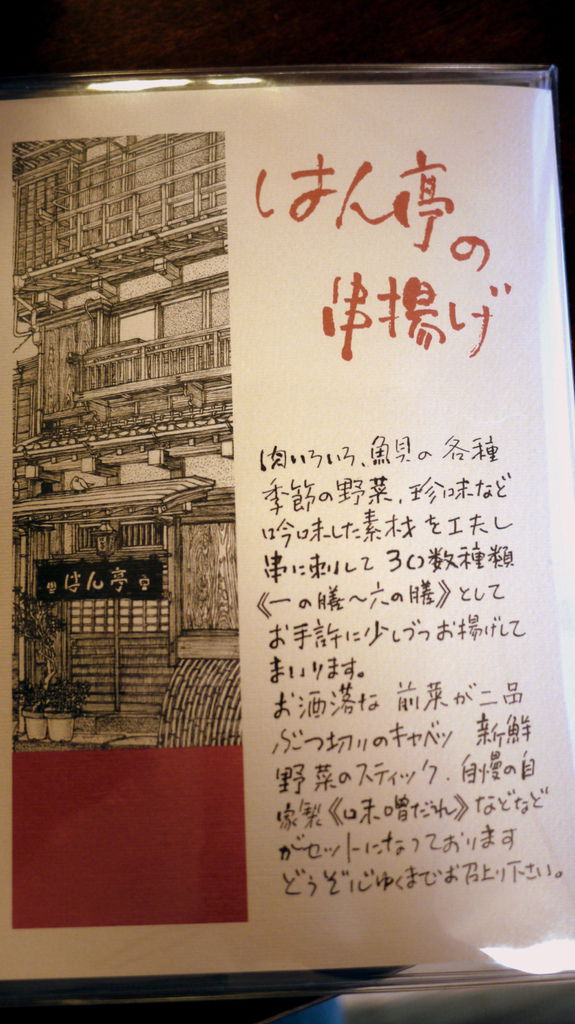 はん亭
の
串揚げ
はん亭
肉いろいろ、魚貝の各種
季節の野菜、珍味など
吟味した素材を工夫し
串に刺して30数種類
《一の膳〜六の膳》として
お手許に少しづつお揚げして
まいります。
お洒落な前菜が二品
ぶつ切りのキャベツ 新鮮
野菜のスティック、自慢の自
家製《味噌だれ》などなど
がセットになっております
どうぞ心ゆくまでお召上り下さい。